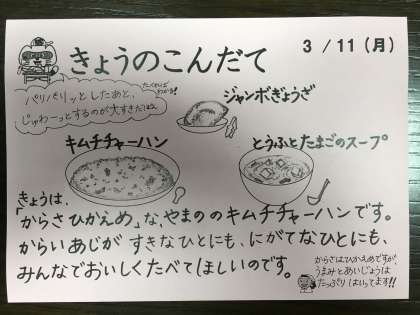 きょうのこんだて
3/11(月)
パリパリッとしたあと、
じゅわーっとするのが大すきだけん
ジャンボぎょうざ
キムチチャーハン
とうふとたまごのスープ
きょうは、
「からさひかえめ」な、やまののキムチチャーハンです。
からいあじが すきなひとにも、にがてなひとにも、
みんなでおいしくたべてほしいのです。
からさはひかえめですが、
うまみとあいじょうは
たっぷりはいってます!!